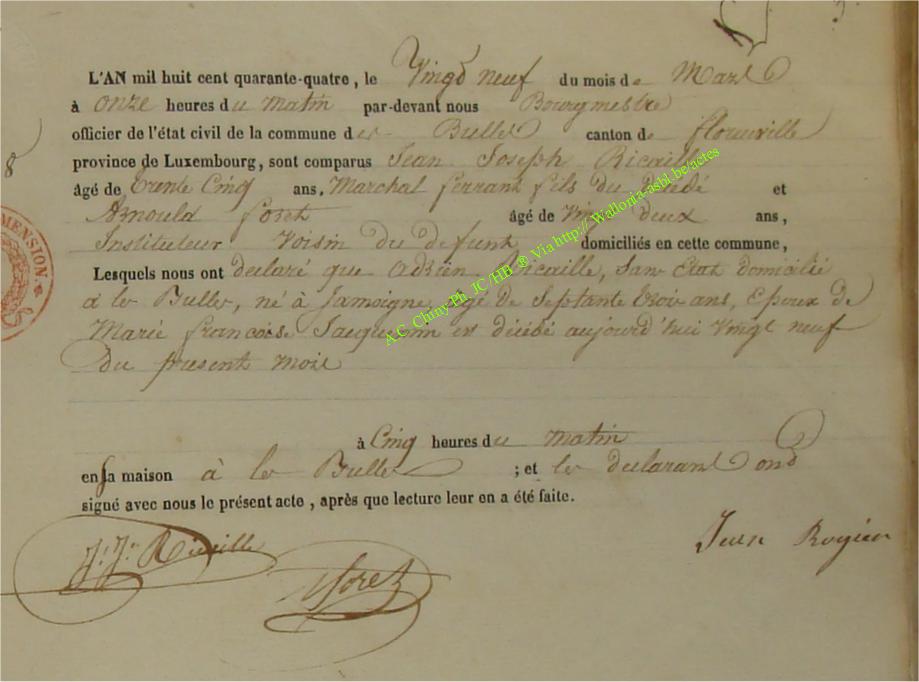 L'AN mil huit cent quarante-quatre, le Vingt neuf du mois de Mars
à onze heures du matin par-devant nous Bourgmestre
officier de l'état civil de la commune de les Bulles canton de florenville
province de Luxembourg, sont comparus Jean Joseph Ricaille
8
âgé de trente Cinq ans, Marchal ferrant fils du décédé et
Arnould foret âgé de Vingt deux ans,
Instituteur Voisin du defunt domiciliés en cette commune,
Lesquels nous ont declaré que Adrien Ricaille, San Etat domicilié
à les Bulles, né à Jamoigne, âgé de Septante trois ans, Epoux de
Marie francoise Jacquemin est décédé aujourd'hui vingt neuf
du present mois
à Cinq heures du matin
en sa maison à les Bulles ; et les declarant ond
signé avec nous le présent acte, après que lecture leur en a été faite.
J. Jh Ricaille
foret
Jean
MENSION
A.C. Chiny Ph. JC /HB ® Via http://Wallonia-asbl.be/actes